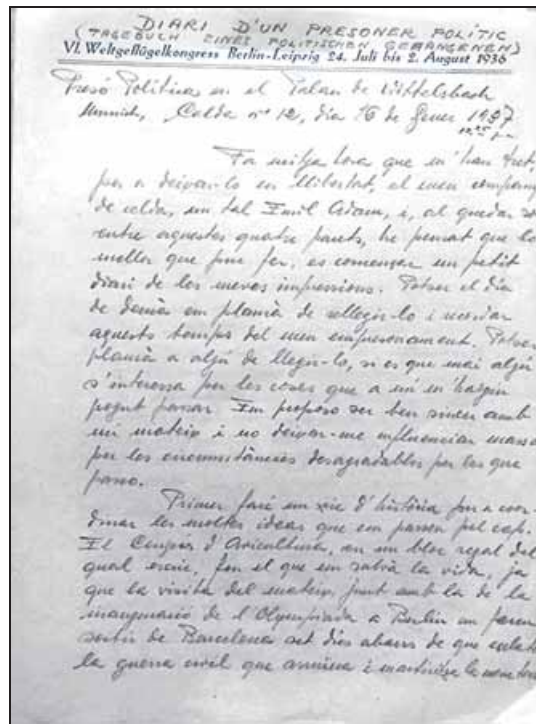 DIARI D'UN PRESONER POLÍTIC
(TAGEBUCH EINES POLITISCHEN GEFANGENEN)
VI. Weltgeflügelkongress Berlin-Leipzig 24. Juli bis 2. August 1936
Presó Política en el Palau de Wittelsbach
Munich, Celda nº 12, dia 16 de Gener 1937
Fa mitja hora que m'han tret,
per a deixar-lo en llibertat, el meu company
de celda, un tal Emil Adam, i, al quedar sol
entre aquestes quatre parets, he pensat que lo
mellor que puc fer, es començar un petit
diari de les meves impressions. Potser el dia
de demà em plaurà de rellegir-lo i recordar
aquests temps del meu empresonament. Potser
plaurà a algú de llegir-lo, si es que mai algú
s'interessa per les coses que a mi m'hagin
pogut passar. Em proposo ser ben sincer amb
mi mateix i no deixar-me influenciar massa
per les circumstàncies desagradables per les que
passo.
Primer faré un xic d'història per a coor-
dinar les moltes idees que em passen pel cap.
El Congrés d'Avicultura, en un bloc regal del
qual escric, fou el que em salvà la vida, ja
que la visita del mateix, junt amb la de la
inauguració de l'Olympiada a Berlin em feren
sortir de Barcelona set dies abans de que esclatés
la guerra civil que arruina i martiritza la nostra